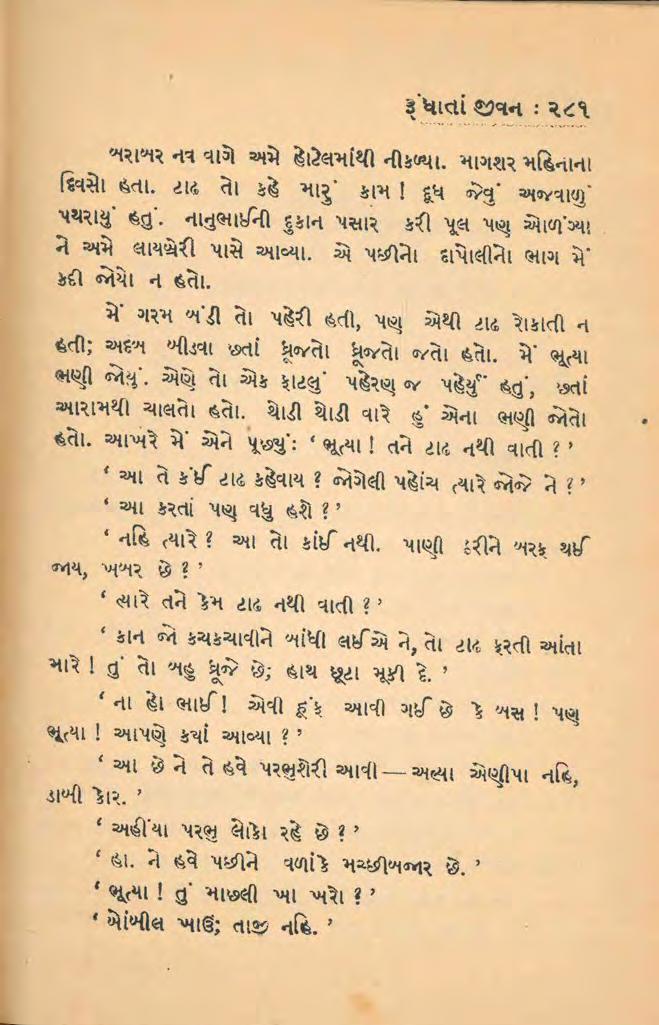 રૂંધાતાં જીવન : ૨૮૧
બરાબર નવ વાગે અમે હોટેલમાંથી નીકળ્યા. માગશર મહિનાના
દિવસો હતા. ટાઢ તો કહે મારું કામ ! દૂધ જેવું અજવાળું
પથરાયું હતું. નાનુભાઈની દુકાન પસાર કરી પૂલ પણ ઓળંગ્યા
ને અમે લાયબ્રેરી પાસે આવ્યા. એ પછીનો દાપોલીનો ભાગ મેં
કદી જોયો ન હતો.
મેં ગરમ બંડી તો પહેરી હતી, પણ એથી ટાઢ રોકાતી ન
હતી; અદબ બીડવા છતાં ધ્રૂજતો ધ્રૂજતો જતો હતો. મેં ભૂત્યા
ભણી જોયું. એણે તો એક ફાટલું પહેરણ જ પહેર્યું હતું, છતાં
આરામથી ચાલતો હતો. થોડી થોડી વારે હું એના ભણી જોતો
હતો. આખરે મેં એને પૂછ્યું: ‘ ભૂત્યા ! તને ટાઢ નથી વાતી ? ’
‘ આ તે કંઈ ટાઢ કહેવાય ? જોગેલી પહોંચ ત્યારે જોજે ને ? ’
‘ આ કરતાં પણ વધુ હશે ? ’
‘ નહિ ત્યારે ? આ તો કાંઈ નથી. પાણી ઠરીને બરફ થઈ
જાય, ખબર છે ? ’
‘ ત્યારે તને કેમ ટાઢ નથી વાતી ? ’
‘ કાન જો કચકચાવીને બાંધી લઈએ ને, તો ટાઢ ફરતી આંતા
મારે ! તું તો બહુ ધ્રૂજે છે; હાથ છૂટા મૂકી દે. ’
‘ ના હો ભાઈ ! એવી હૂંફ આવી ગઈ છે કે બસ ! પણ
ભૂત્યા ! આપણે કયાં આવ્યા ? ’
‘ આ છે ને તે હવે પરભુશેરી આવી — અલ્યા એણીપા નહિ,
ડાબી કોર. ’
‘ અહીંયા પરભુ લોકો રહે છે ? ’
‘ હા. ને હવે પછીને વળાંકે મચ્છીબજાર છે. ’
‘ ભૂત્યા ! તું માછલી ખા ખરો ? ’
‘ બોંબીલ ખાઉં; તાજી નહિ. ’